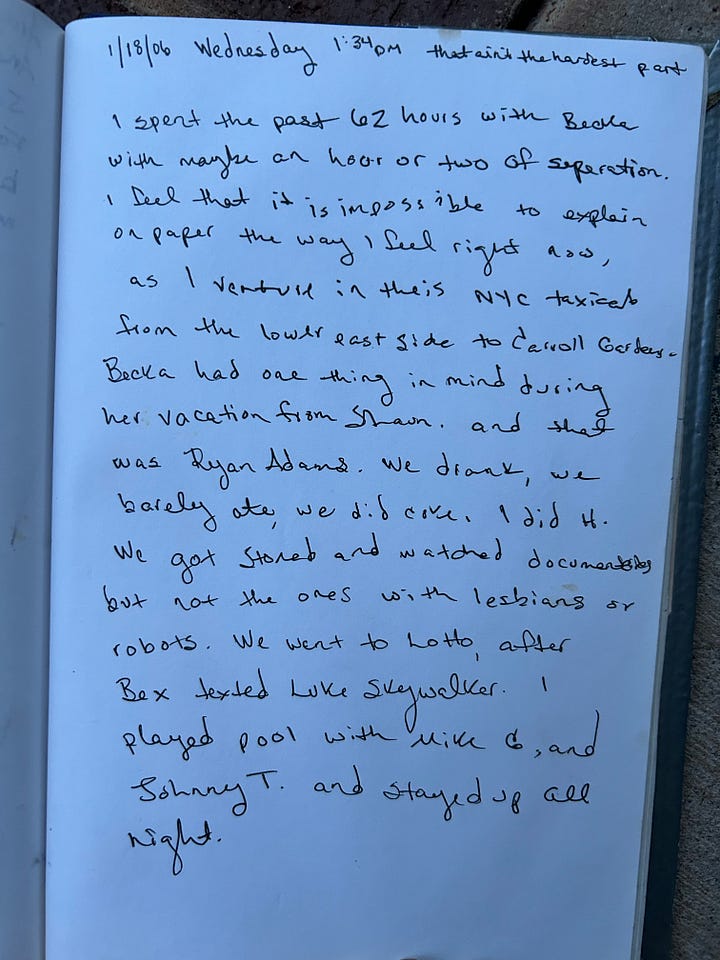 1/18/06 Wednesday 1:34pm that ain't the hardest part
I spent the past 62 hours with Becka
with maybe an hour or two of separation.
I feel that it is impossible to explain
on paper the way I feel right now,
as I venture in theis NYC taxicab
from the lower east side to Carroll Gardens.
Becka had one thing in mind during
her vacation from Shawn. and that
was Ryan Adams. We drank, we
barely ate, we did coke. I did H.
We got stoned and watched documentaries
but not the ones with lesbians or
robots. We went to Lotto, after
Bex texted Luke Skywalker. I
played pool with Mike G, and
Johnny T. and stayed up all
night.